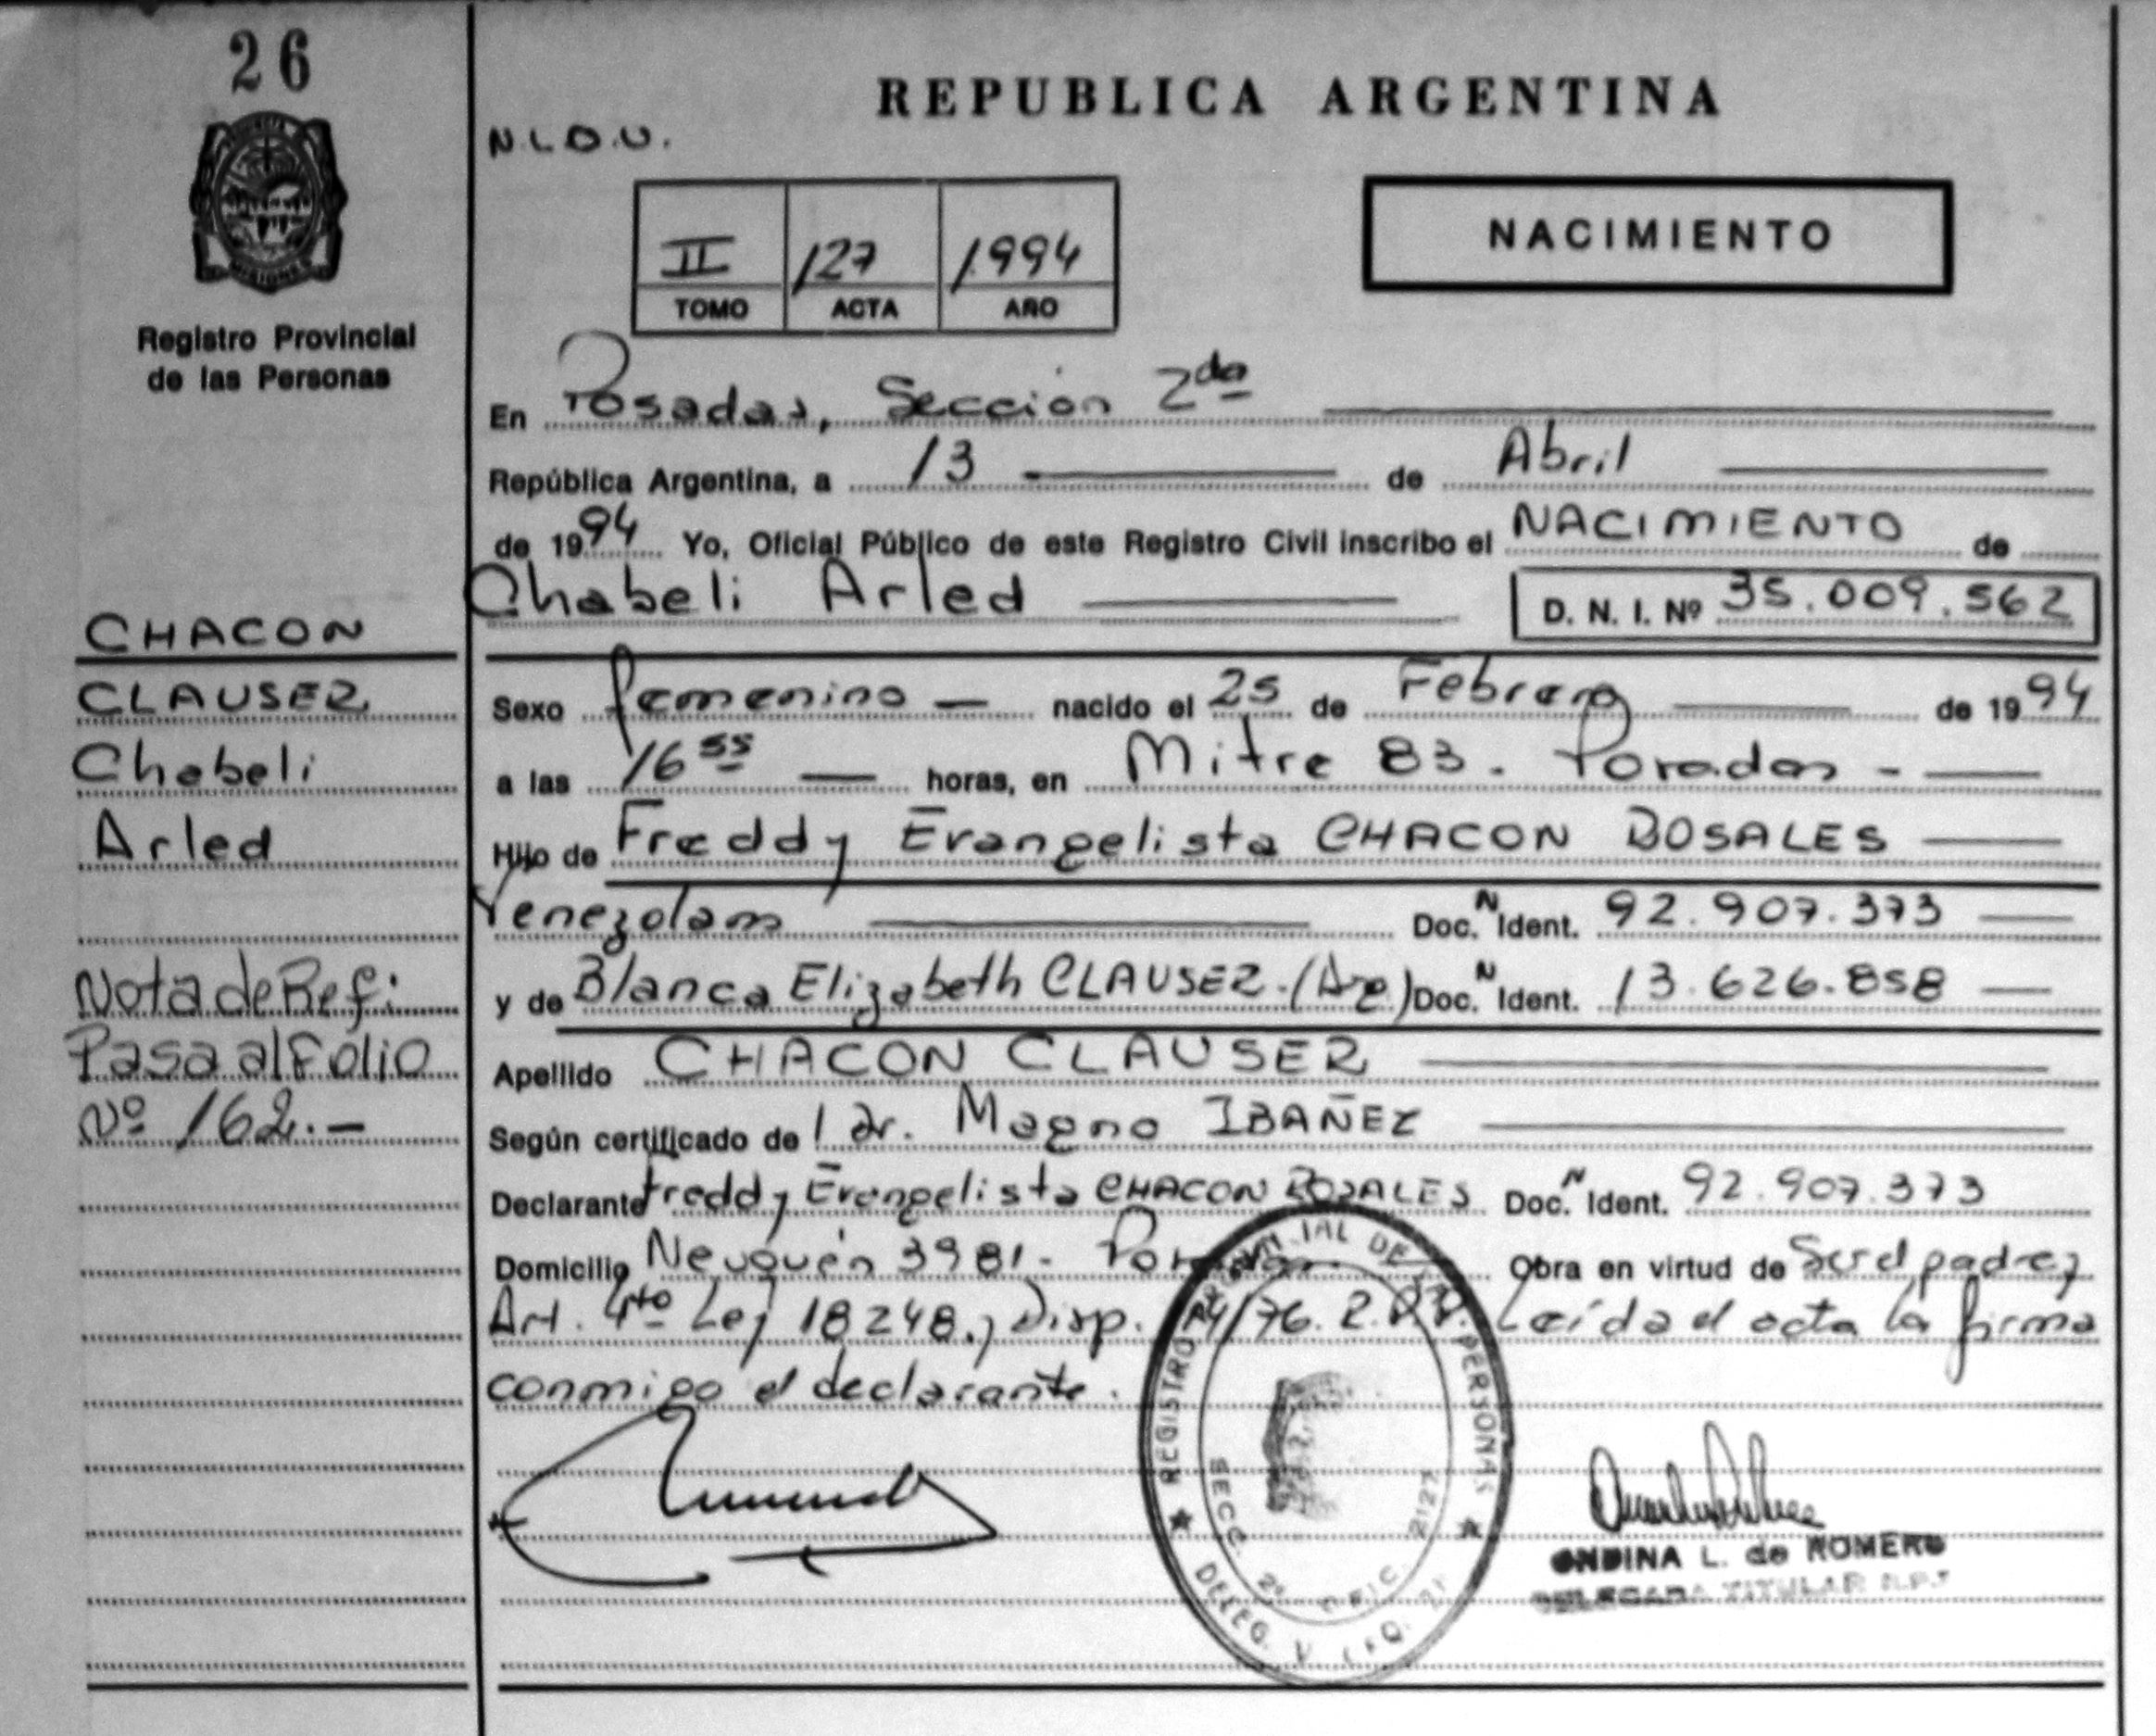 26
Registro Provincial
de las Personas
CHACON
CLAUSER
Chabeli
Arled
Nota de Ref:
Pasa al Folio
Nº 162.-
REPUBLICA ARGENTINA
N.L.D.U.
II 127 1994
TOMO ACTA AÑO
NACIMIENTO
En Posadas, Sección 2da
República Argentina, a 13 de Abril
de 1994 Yo, Oficial Público de este Registro Civil inscribo el NACIMIENTO de
Chabeli Arled D. N. I. Nº 35.009.562
Sexo femenino — nacido el 25 de Febrero de 1994
a las 16 55 — horas, en Mitre 83. Posadas -
Hijo de Freddy Evangelista CHACON ROSALES
Venezolano Doc. N Ident. 92.907.373
y de Blanca Elizabeth CLAUSER. (Arg) Doc. N Ident. 13.626.858
Apellido CHACON CLAUSER
Según certificado de l dr. Magno IBAÑEZ
Declarante Freddy Evangelista CHACON ROSALES Doc. N Ident. 92.907.373
Domicilio Neuquén 3981. Posadas Obra en virtud de Ser el padre y
Art. 4to Ley 18248, y Disp. /76. Leída el acta la firma
conmigo el declarante.
REGISTRO PROVINCIAL DE LAS PERSONAS
SECC. 2ª OFIC. 2127
DELEG.
ONDINA L. de ROMERO
DELEGADA TITULAR